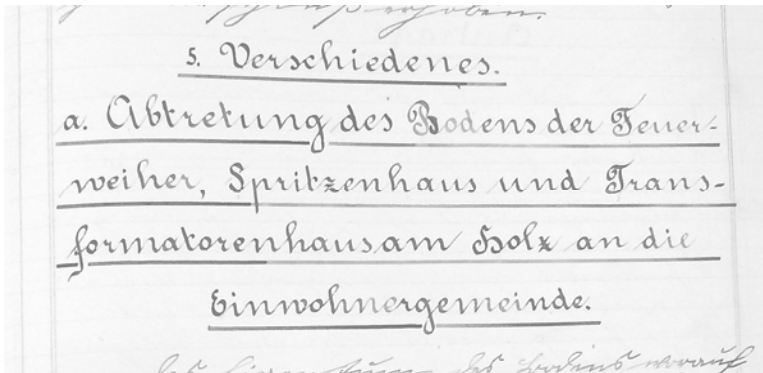 erhoben.
5. Verschiedenes.
a. Abtretung des Bodens der Feuer-
weiher, Spritzenhaus und Trans-
formatorenhaus am Holz an die
Einwohnergemeinde.
des Bodens worauf